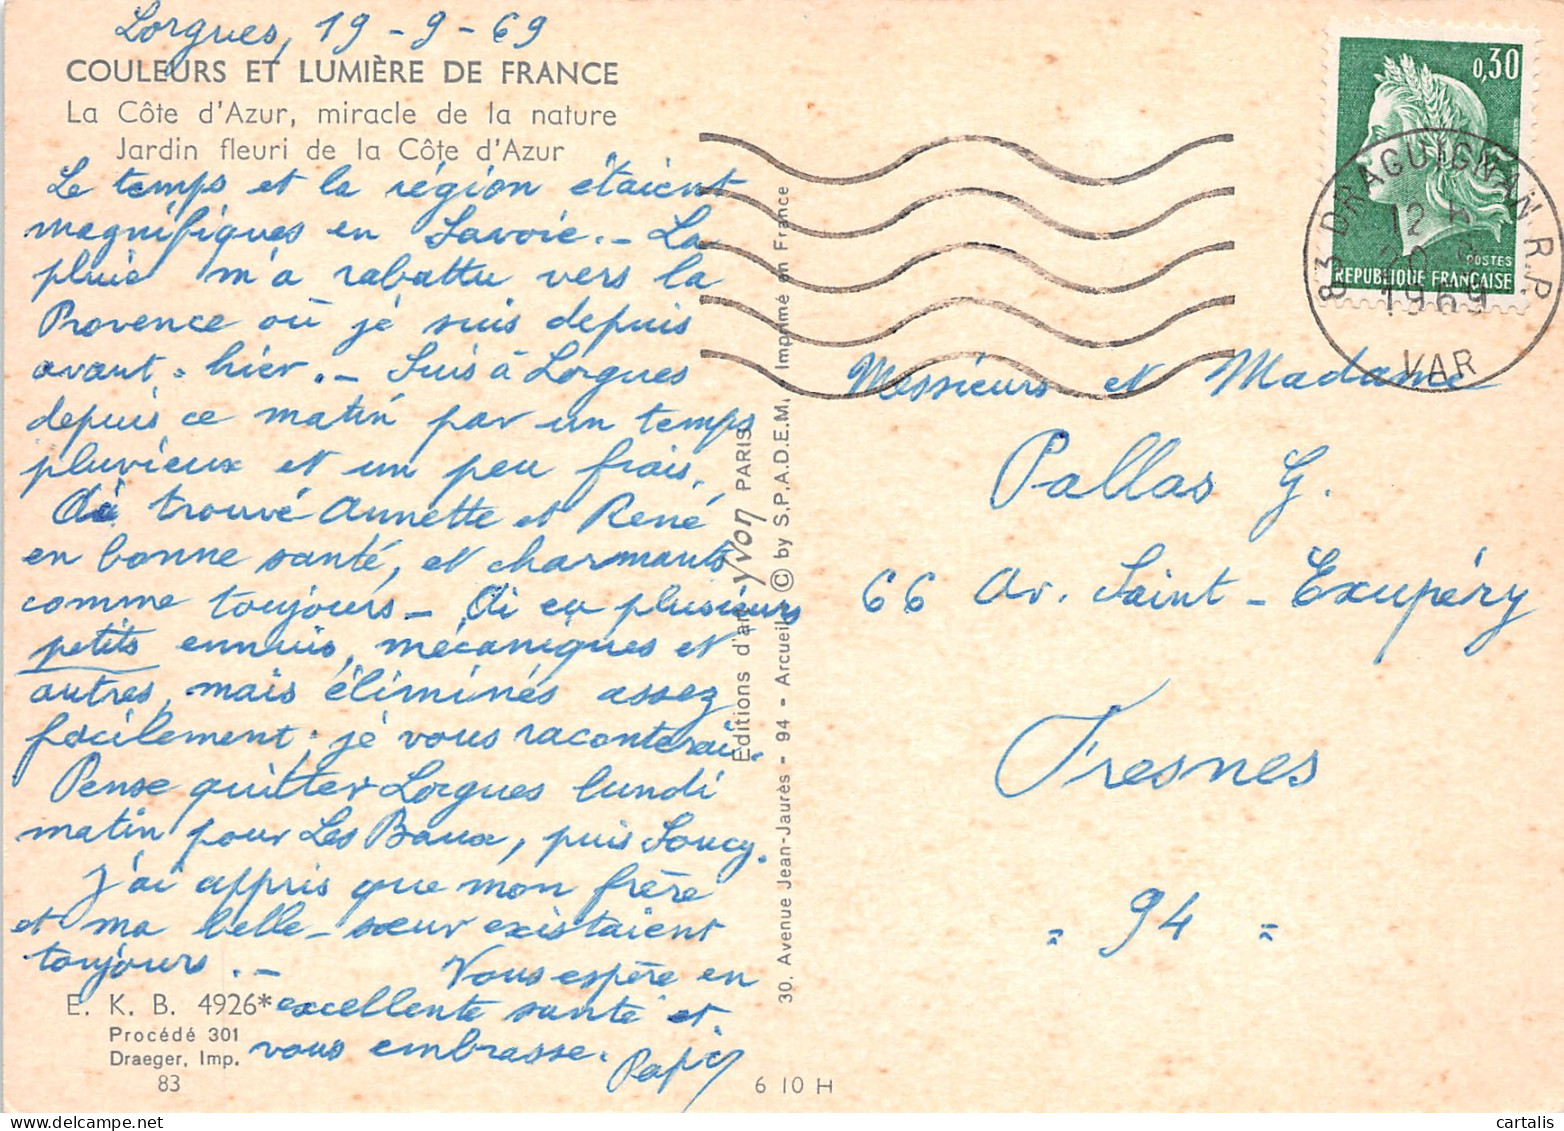 Lorgues, 19-9-69
COULEURS ET LUMIÈRE DE FRANCE
La Côte d'Azur, miracle de la nature
Jardin fleuri de la Côte d'Azur
Le temps et la région étaient
magnifiques en Savoie.- La
pluie m'a rabattu vers la
Provence où je suis depuis
avant-hier.- Suis à Lorgues
depuis ce matin par un temps
pluvieux et un peu frais.
Ai trouvé Annette et René
en bonne santé, et charmants
comme toujours- Ai eu plusieurs
petits ennuis, mécaniques et
autres, mais éliminés assez
facilement; je vous raconterai.
Pense quitter Lorgues lundi
matin pour Les Baux, puis Soucy.
J'ai appris que mon frère
et ma belle-sœur existaient
toujours.-
Vous espère en
excellente santé et
vous embrasse.
Papi
E. K. B. 4926*
Procédé 301
Draeger, Imp.
83
Editions d'art yvon PARIS
30. Avenue Jean-Jaurès - 94 - Arcueil © by S.P.A.D.E.M. Imprimé en France
6 10 H
0,30
POSTES
REPUBLIQUE FRANÇAISE
83 DRAGUIGNAN R.P.
12 H
20
1969
VAR
Messieurs et Madame
Pallas G.
66 Av. Saint-Exupéry
Fresnes
= 94 =
cartalis